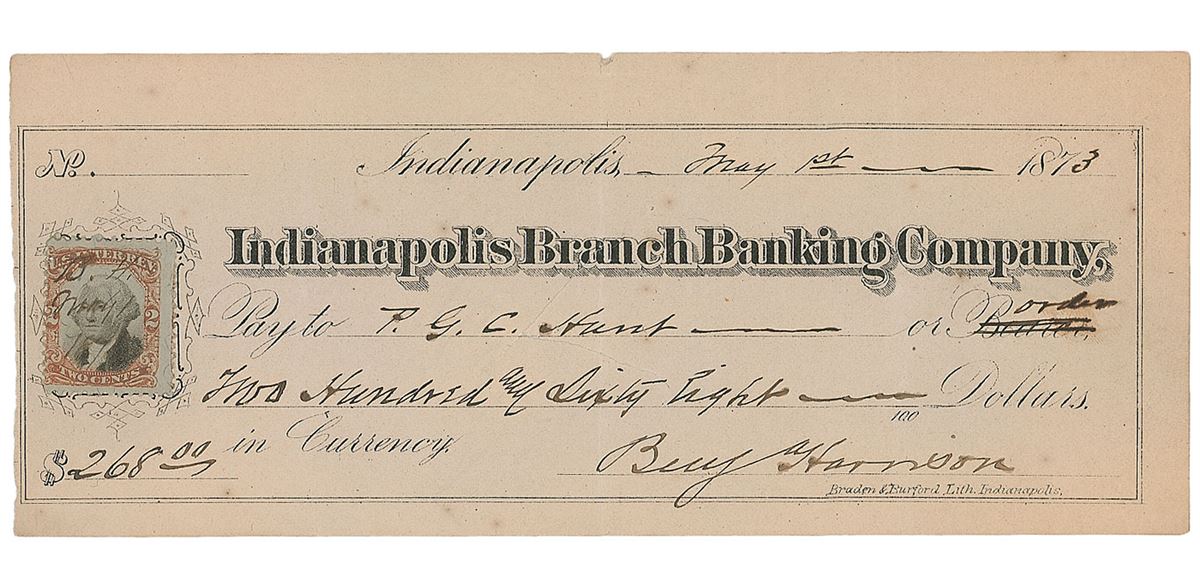 No.
Indianapolis, May 1st 1873
Indianapolis Branch Banking Company,
Pay to P. G. C. Hunt or Bearer, order
Two Hundred and Sixty Eight 100 Dollars.
$268 00 in Currency. Benj Harrison
Braden & Burford, Lith. Indianapolis.
INTER. REV.
2 2
TWO CENTS